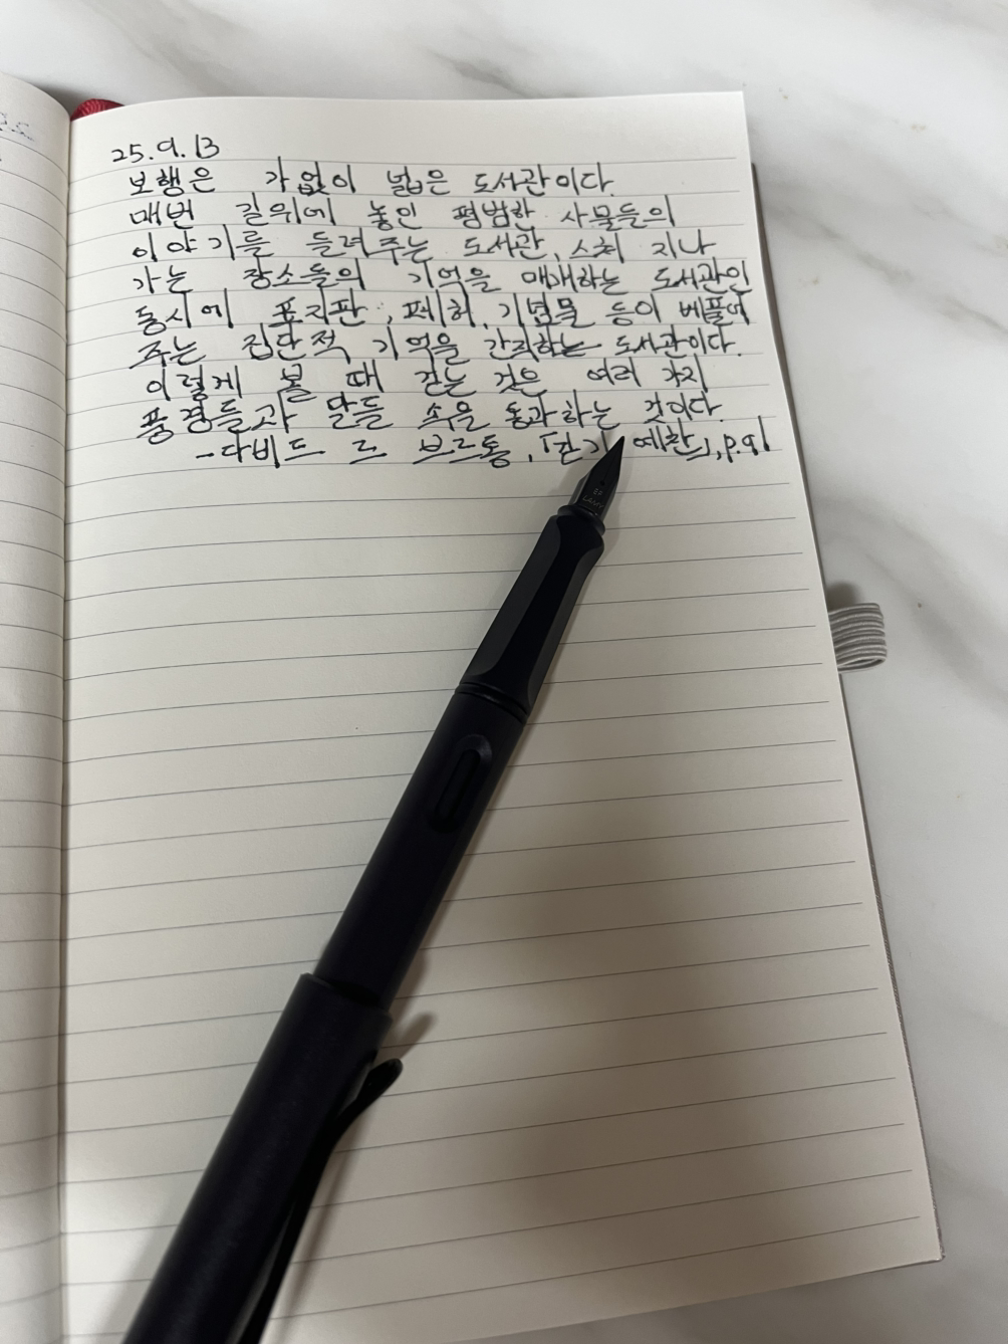 25.9.13
보행은 가없이 넓은 도서관이다.
매번 길위에 놓인 평범한 사물들의
이야기를 들려주는 도서관, 스쳐 지나
가는 장소들의 기억을 매개하는 도서관인
동시에 표지판, 폐허, 기념물 등이 베풀어
주는 집단적 기억을 간직하는 도서관이다.
이렇게 볼 때 걷는 것은 여러 가지
풍경들과 말들 속을 통과하는 것이다.
-다비드 르 브르통, 「걷기 예찬」, p.91
LAMY